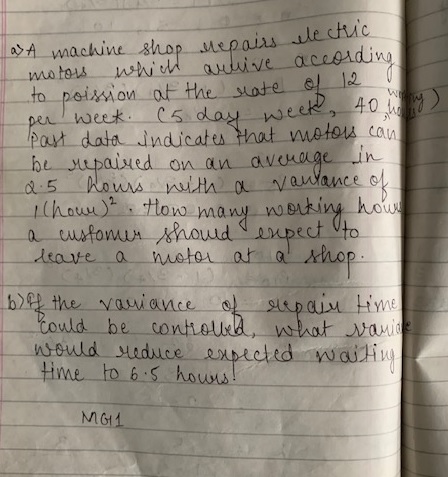 a) A machine shop repairs electric
motors which arrive according
to poission at the rate of 12
per week. (5 day week, 40 working hours)
Past data indicates that motors can
be repaired on an average in
2.5 hours with a variance of
1(hour)². How many working hours
a customer should expect to
leave a motor at a shop.
b) If the variance of repair time
could be controlled, what variance
would reduce expected waiting
time to 6.5 hours!
MG1